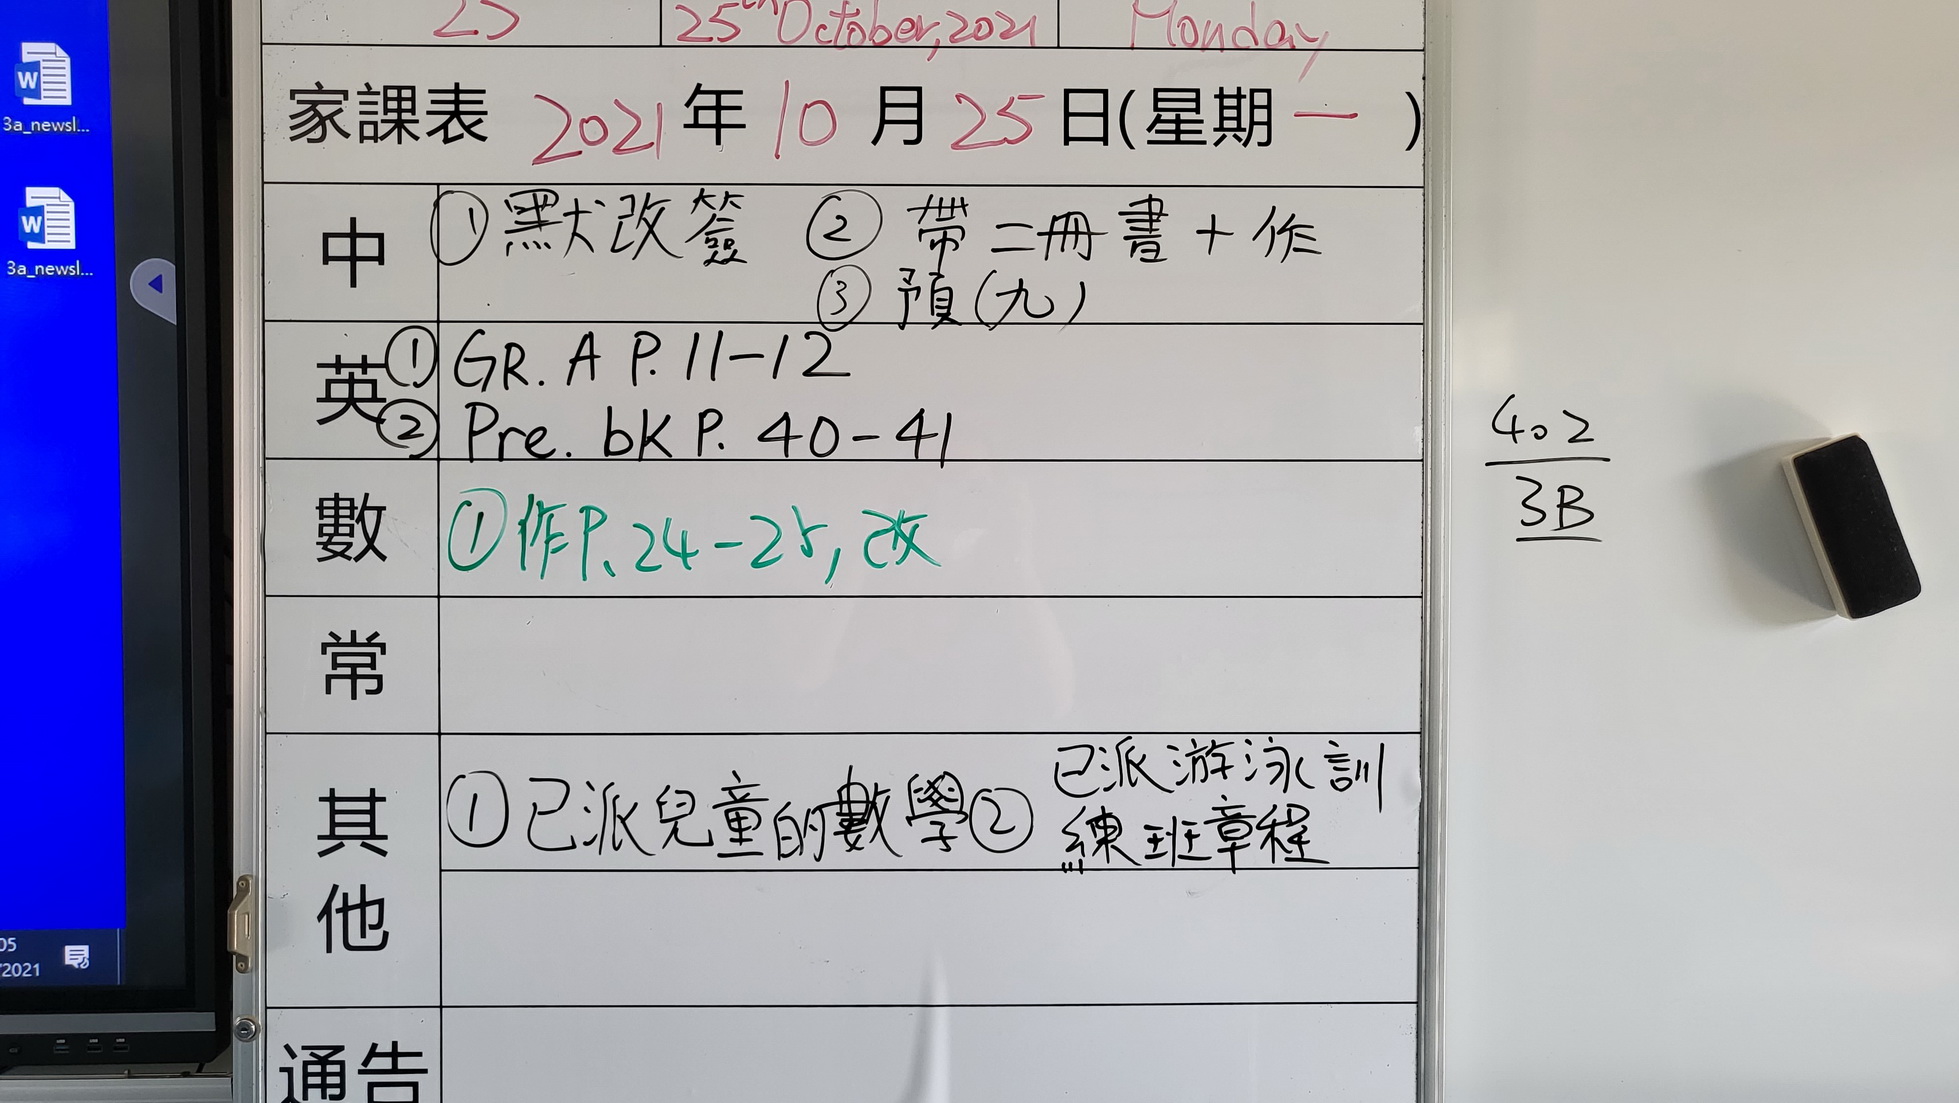 25 25th October, 2021 Monday
家課表 2021年10月25日(星期一)
中 ①默改簽 ②帶二冊書+作
③預(九)
英 ①GR. A P. 11-12
②Pre. bk P. 40-41
數 ①作P. 24-25, 改
常
其他 ①已派兒童的數學 ②已派游泳訓
練班章程
通告
4。2
3B
3a_newsl...
3a_newsl...
05
/2021